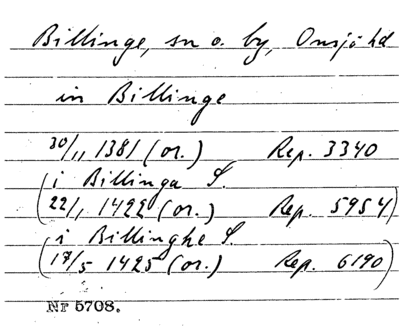 Billinge, sn o. by, Onsjö hd
in Billinge
30/11 1381 (or.) Rep. 3340
(i Billinga S.
22/1 1422 (or.) Rep. 5954)
(i Billinghe S.
17/5 1425 (or.) Rep. 6190)
Nr 5708.